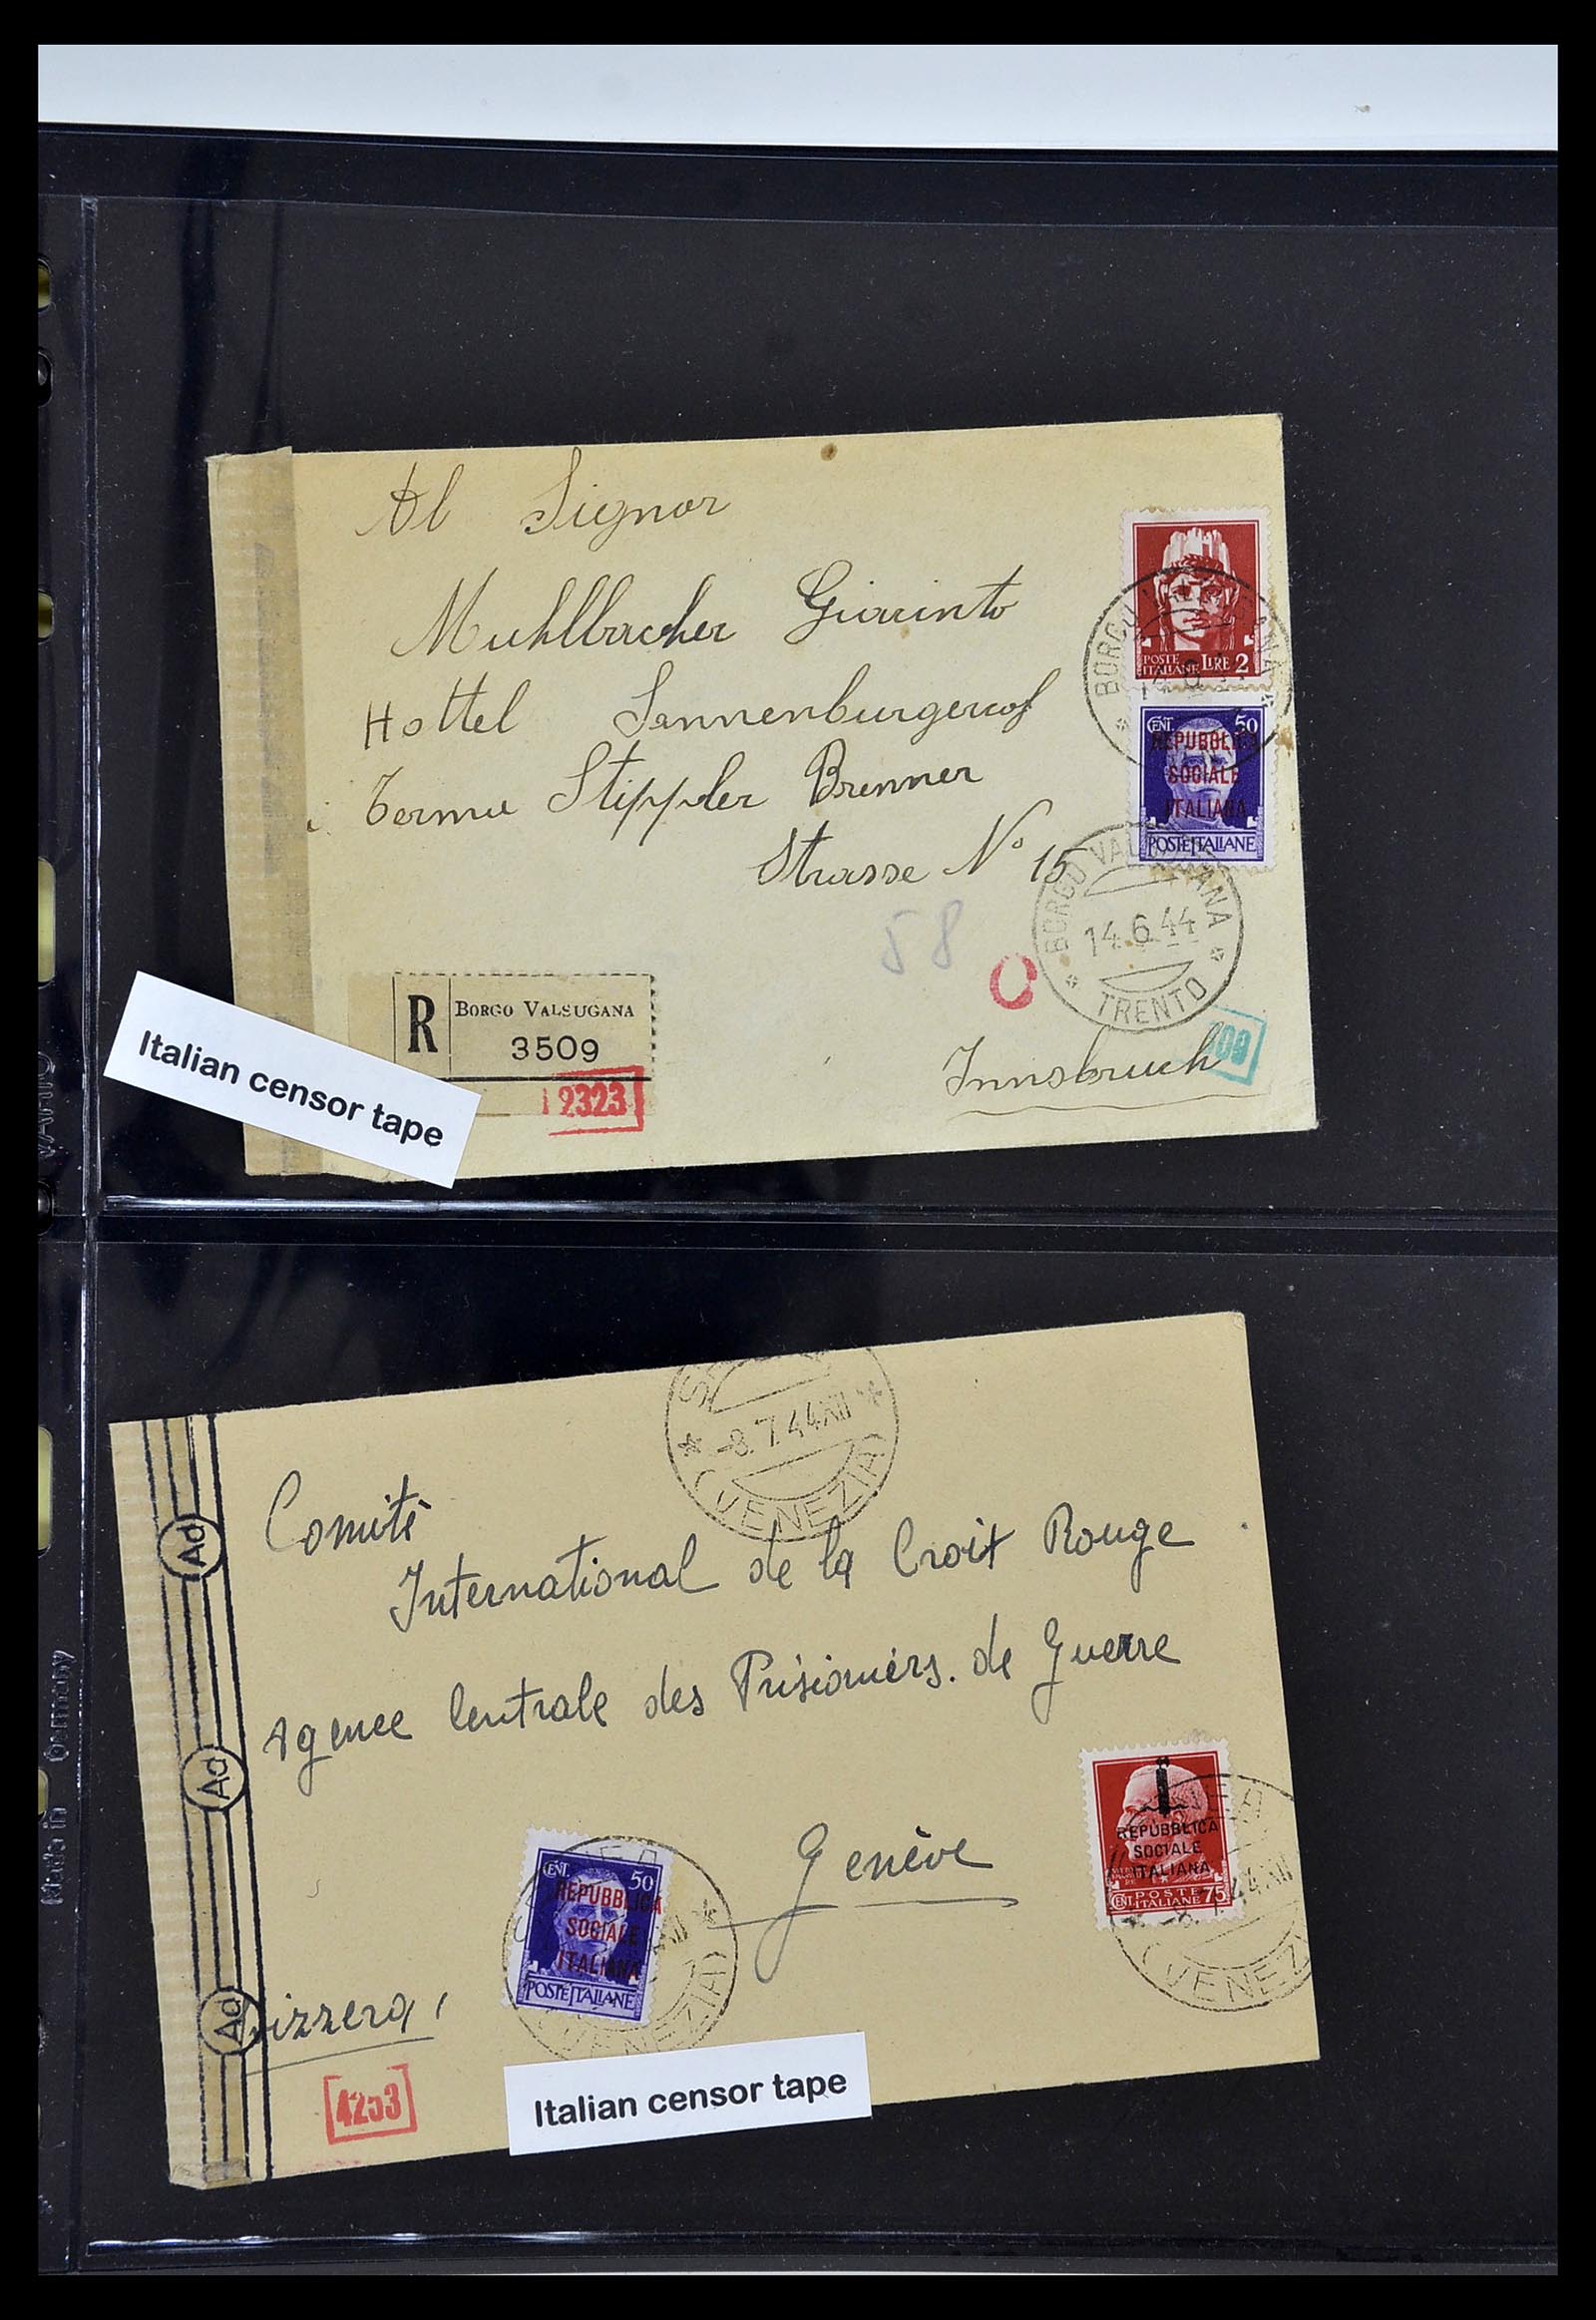 Al Signor
Muhlbacher Giacinto
Hottel Sonnenburgerof
Strasse No 15
Stippler Brenner
58
POSTE ITALIANE LIRE 2
CENT. 50
REPUBBLICA
SOCIALE
ITALIANA
POSTE ITALIANE
BORGO VALSUGANA
14.6.44
TRENTO
R
BORGO VALSUGANA
3509
2323
Innsbruck
Italian censor tape
-8.7.44 XXII
(VENEZIA)
Comité
International de la Croix Rouge
Agence Centrale des Prisioniérs. de Guerre
Genève
Ad
Ad
Ad
REPUBBLICA
SOCIALE
ITALIANA
CENT. POSTE ITALIANE 75
(VENEZIA)
CENT. 50
REPUBBLICA
SOCIALE
ITALIANA
POSTE ITALIANE
(VENEZIA)
4253
Italian censor tape
Made in Germany